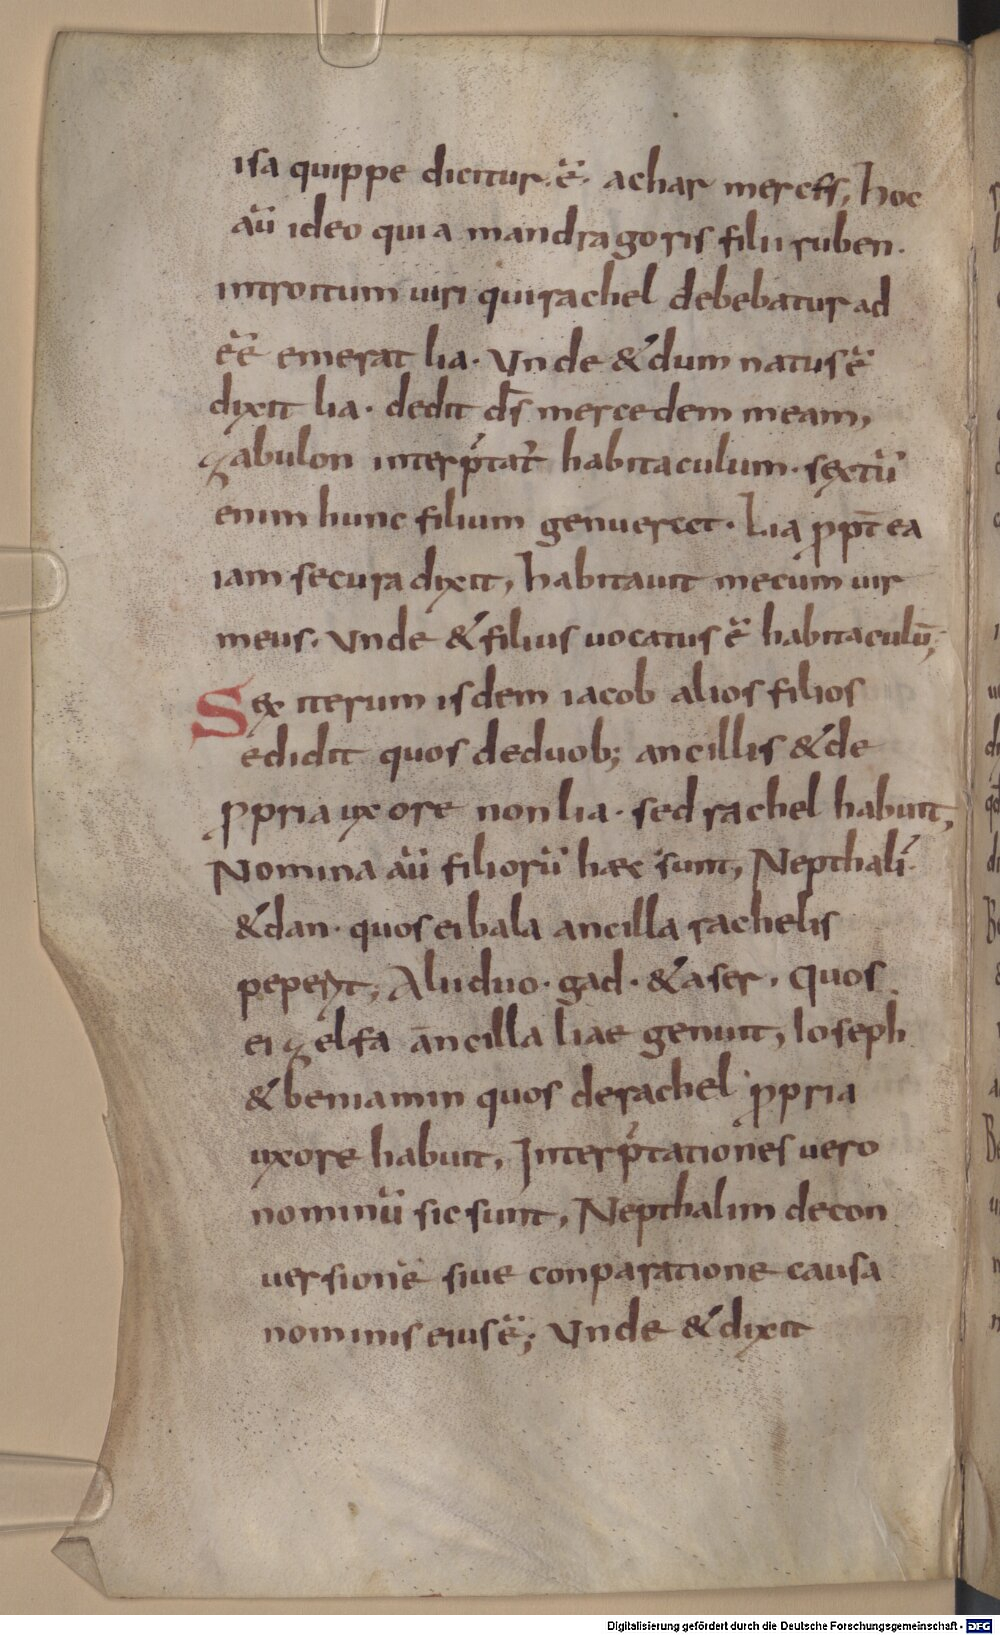 isa quippe dicitur·ē· achar merces, hoc
aū ideo quia mandragoris filii ruben·
introitum uiri qui rachel debebatur ad
eē emerat lia· Vnde &dum natus ē
dixit lia· dedit d̄s mercedem meam,
Zabulon interp̄tat̄ habitaculum· sextū
enim hunc filium genuerat· Lia ꝓpt̄ ea
iam secura dixit, habitauit mecum uir
meus· Vnde &filius uocatus ē habitaculū;
Sex iterum isdem iacob alios filios
edidit quos deduob; ancillis &de
ꝓpria uxore non lia· sed rachel habuit,
Nomina aū filiorū haec sunt, Nepthalī·
&dan· quos ei bala ancilla rachelis
peperit, Alii duo· gad· &aser· Quos
ei zelfa ancilla liae genuit, Ioseph
&beniamin quos derachel ꝓpria
uxore habuit, Interp̄tationes uero
nominū sic sunt, Nepthalim decon
uersione siue conparatione causa
nominis eius ē; Vnde &dixit
Digitalisierung gefördert durch die Deutsche Forschungsgemeinschaft - DFG